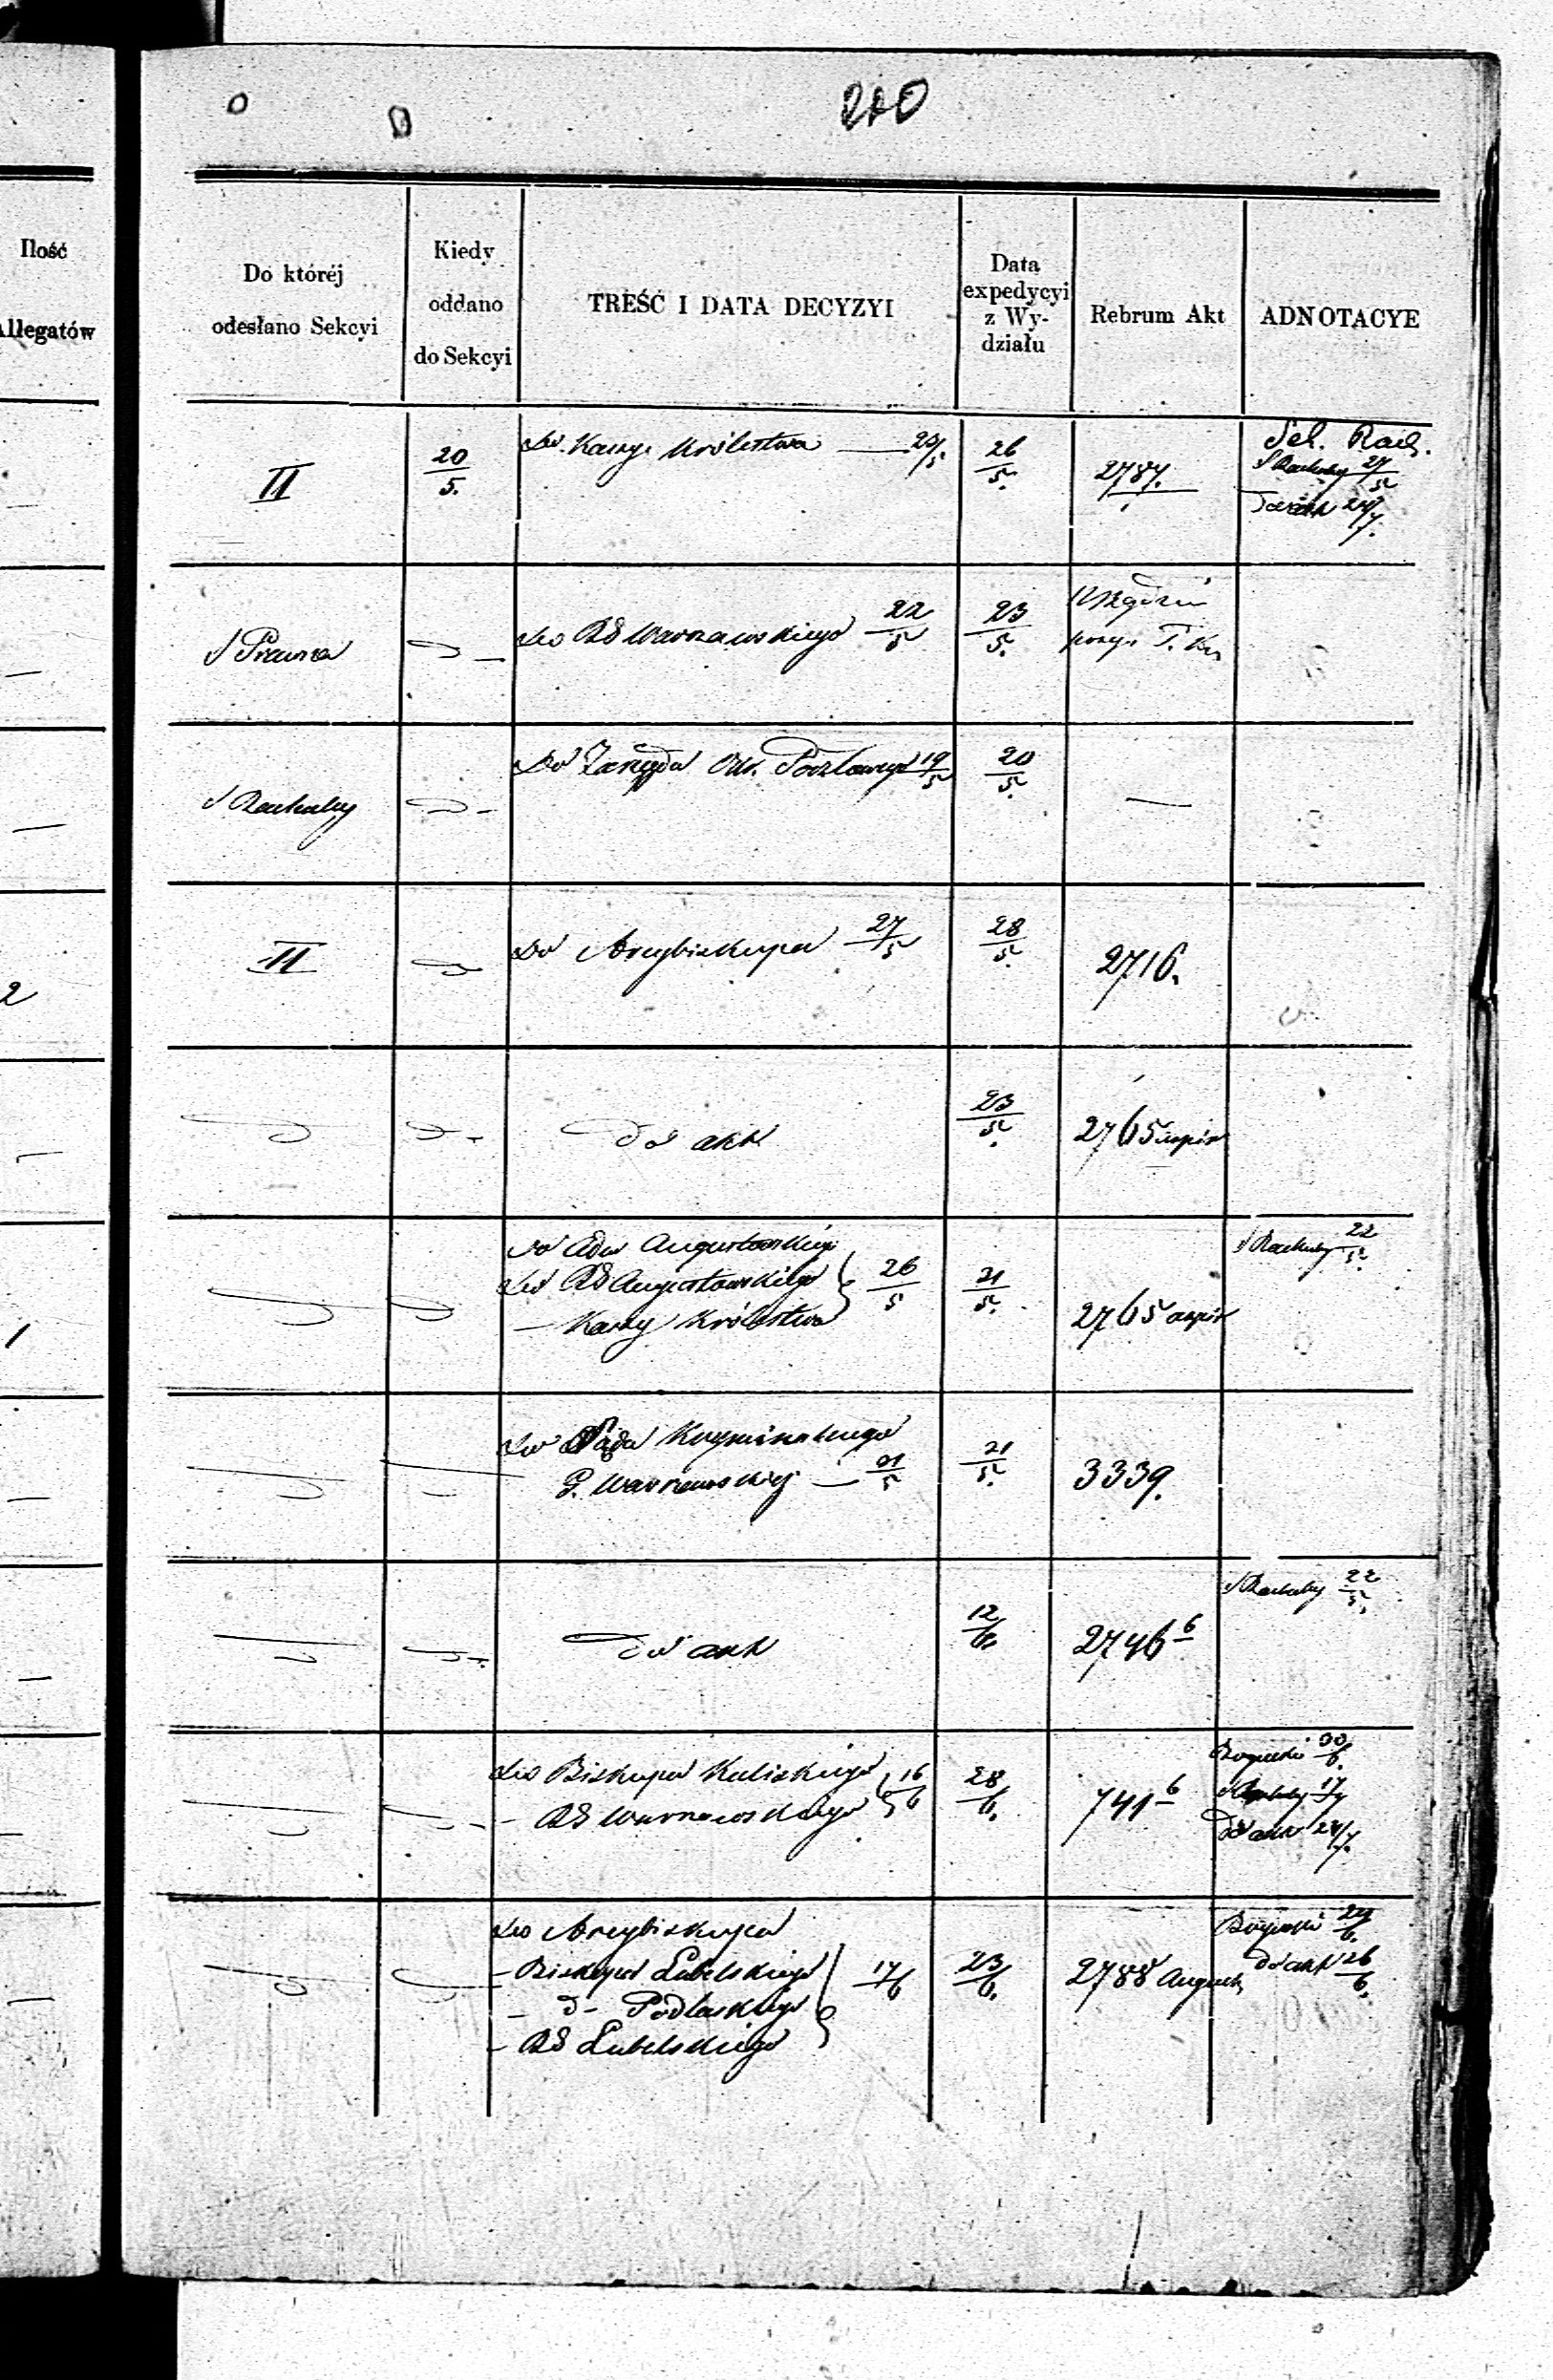 210
Ilość
Allegatów
Do któréj
odesłano Sekcyi
Kiedy
oddano
do Sekcyi
TREŚĆ I DATA DECYZYI
Data
expedycyi
z Wy-
działu
Rebrum Akt
ADNOTACYE
II
20/5.
Do Kassy Królestwa — 23/5.
26/5.
2787.
Sek. Rach.
S Rachuby 27/5
do akt 24/7.
S Prawna
D —
Do RG Warszawskiego 22/5
23/5.
S Rachuby
D -
Do Zarządu Okr. Pocztowego 19/5
20/5.
—
II
D
Do Arcybiskupa 27/5
28/5.
2716.
2
D
D -
do akt
23/5.
2765
D
D
Do RG Augustowskiego
— Kassy Królestwa
26/5
21/5.
2765
S Rachuby 22/5.
1
D
D
Do Sądu Kryminalnego
G. Warszawskiej — 21/5
21/5.
3339.
D
D
do akt
12/6.
2746 b
S Rachuby 22/5.
D
D -
Do Biskupa Kaliskiego
- RG Warszawskiego
16/6
28/6.
741 b
30/6.
17/7
do akt 24/7.
D
D
Do Arcybiskupa
- Biskupa Lubelskiego
- d - Podlaskiego
- RG Lubelskiego
17/6
23/6.
2788
24/6.
do akt 26/6.